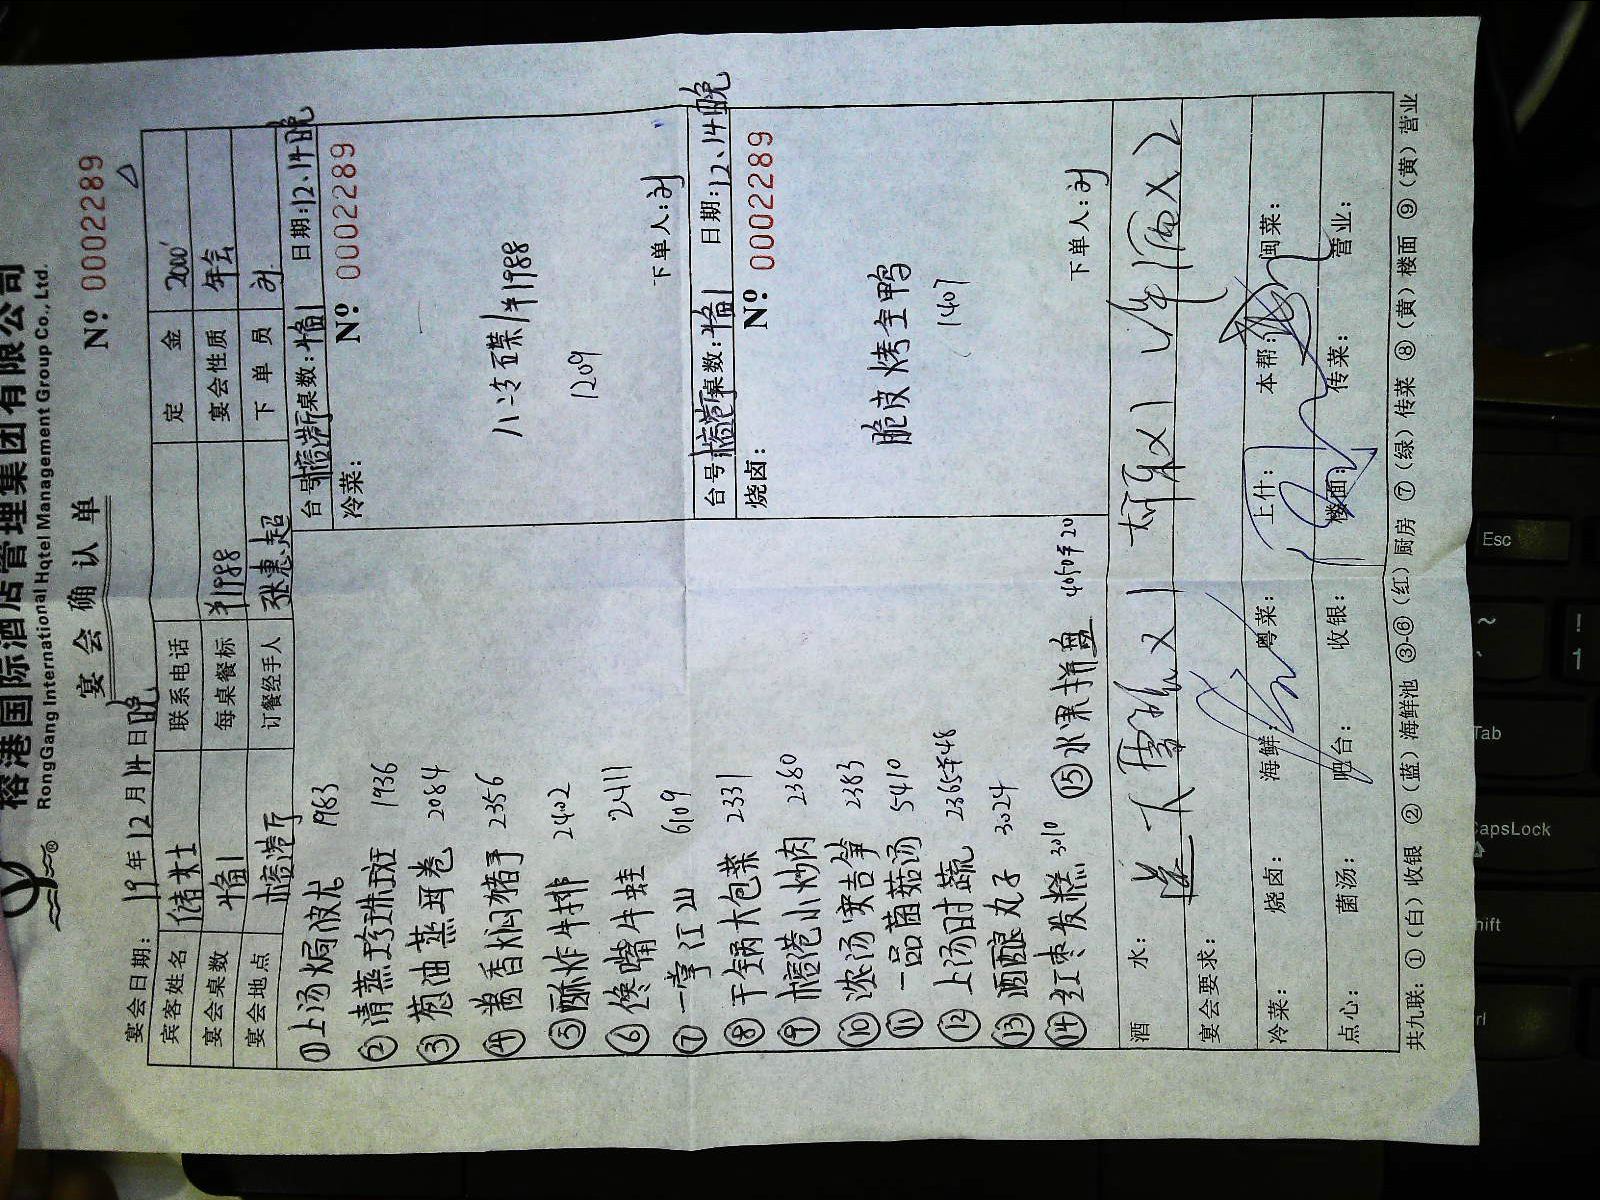 榕港国际酒店管理集团有限公司
RongGang International Hqtel Management Group Co., Ltd.
宴会确认单
Nº 0002289
宴会日期：19年12月14日晚
宾客姓名 储女士 联系电话 定金 2000
宴会桌数 1备1 每桌餐标 半1988 宴会性质 年会
宴会地点 榕港厅 订餐经手人 张惠超 下单员 刘
①上汤焗波龙 1983
②清蒸珍珠斑 1936
③葱油蒸耳卷 2084
④酱香焖猪手 2356
⑤酥炸牛排 2402
⑥馋嘴牛蛙 2411
⑦一掌江山 6109
⑧干锅大包菜 2331
⑨榕港小炒肉 2380
⑩浓汤安吉笋 2383
⑪一品菌菇汤 5410
⑫上汤时蔬 2365半48
⑬酒酿丸子 3024
⑭红枣发糕 3010
⑮水果拼盘 4050半20
台号：榕港厅 桌数：1备1 日期：12.14晚
冷菜： Nº 0002289
八冷碟/半1988
1209
下单人：刘
台号：榕港厅 桌数：1备1 日期：12.14晚
烧卤： Nº 0002289
脆皮烤全鸭
1407
下单人：刘
酒水：
宴会要求：
冷菜： 烧卤： 海鲜： 粤菜： 上什： 本帮： 闽菜：
点心： 菌汤： 吧台： 收银： 楼面： 传菜： 营业：
共九联：①（白）收银 ②（蓝）海鲜池 ③-⑥（红）厨房 ⑦（绿）传菜 ⑧（黄）楼面 ⑨（黄）营业
Esc
Tab
CapsLock